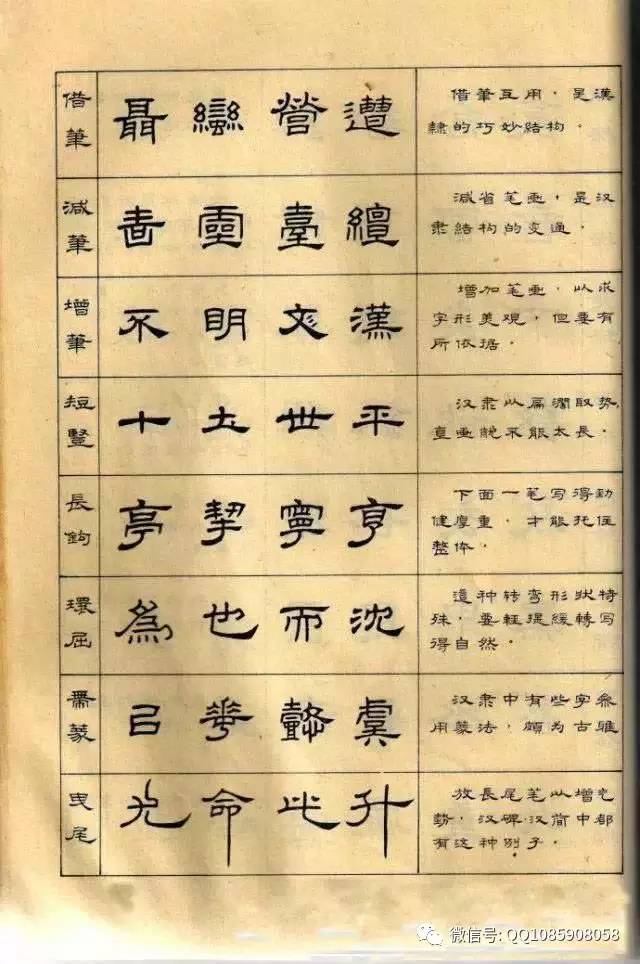 借筆
聶 蠻 營 遭
借筆互用，是漢
隸的巧妙結构．
減筆
靈 臺
減省笔画，是汉
隶結构的变通．
增筆
不 明 漢
增加笔画，以求
字形美观，但要有
所依据．
短豎
十 土 世 平
汉隶以扁濶取势，
直画 不能太长．
長鉤
亭 挈 寧 亨
下面一笔写得劲
健厚重，才能托住
整体．
環屈
為 也 而 沈
這种转弯形狀特
殊，要輕提緩轉写
得自然．
兼篆
華 懿 虞
汉隶中有些字参
用篆法，頗为古雅
曳尾
光 命 比 升
放長尾笔以增气
势，汉碑汉简中都
有这种例子．
微信号: QQ1085908058